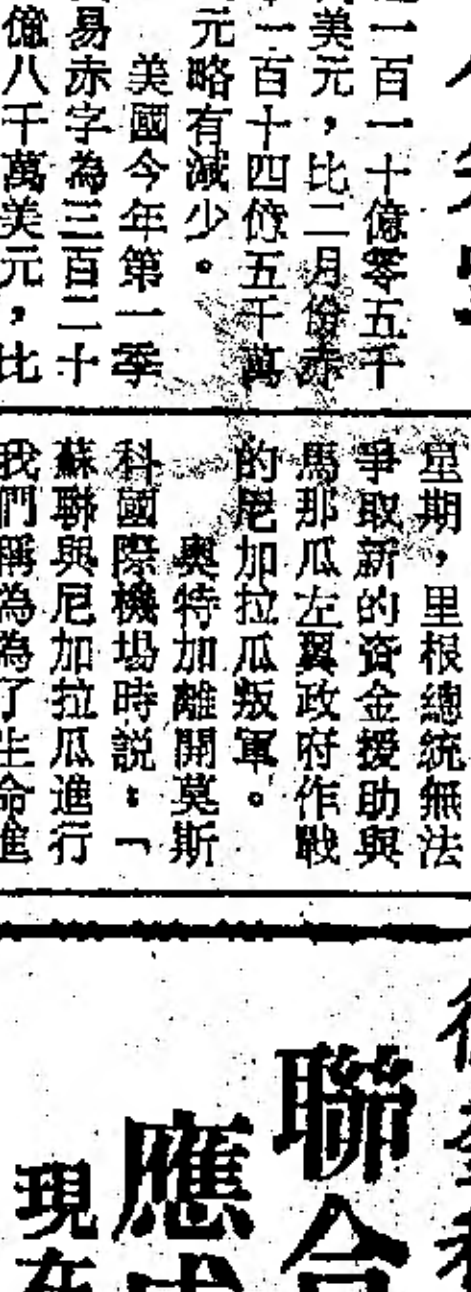 一百一十億零五千
美元，比二月份赤
一百十四億五千萬
元略有減少。
美國今年第一季
易赤字為三百二十
億八千萬美元，比
星期，里根總統無法
爭取新的資金援助與
馬那瓜左翼政府作戰
的尼加拉瓜叛軍。
奧特加離開莫斯
科國際機場時説：「
蘇聯與尼加拉瓜進行
我們稱為為了生命進
聯合
應
現在